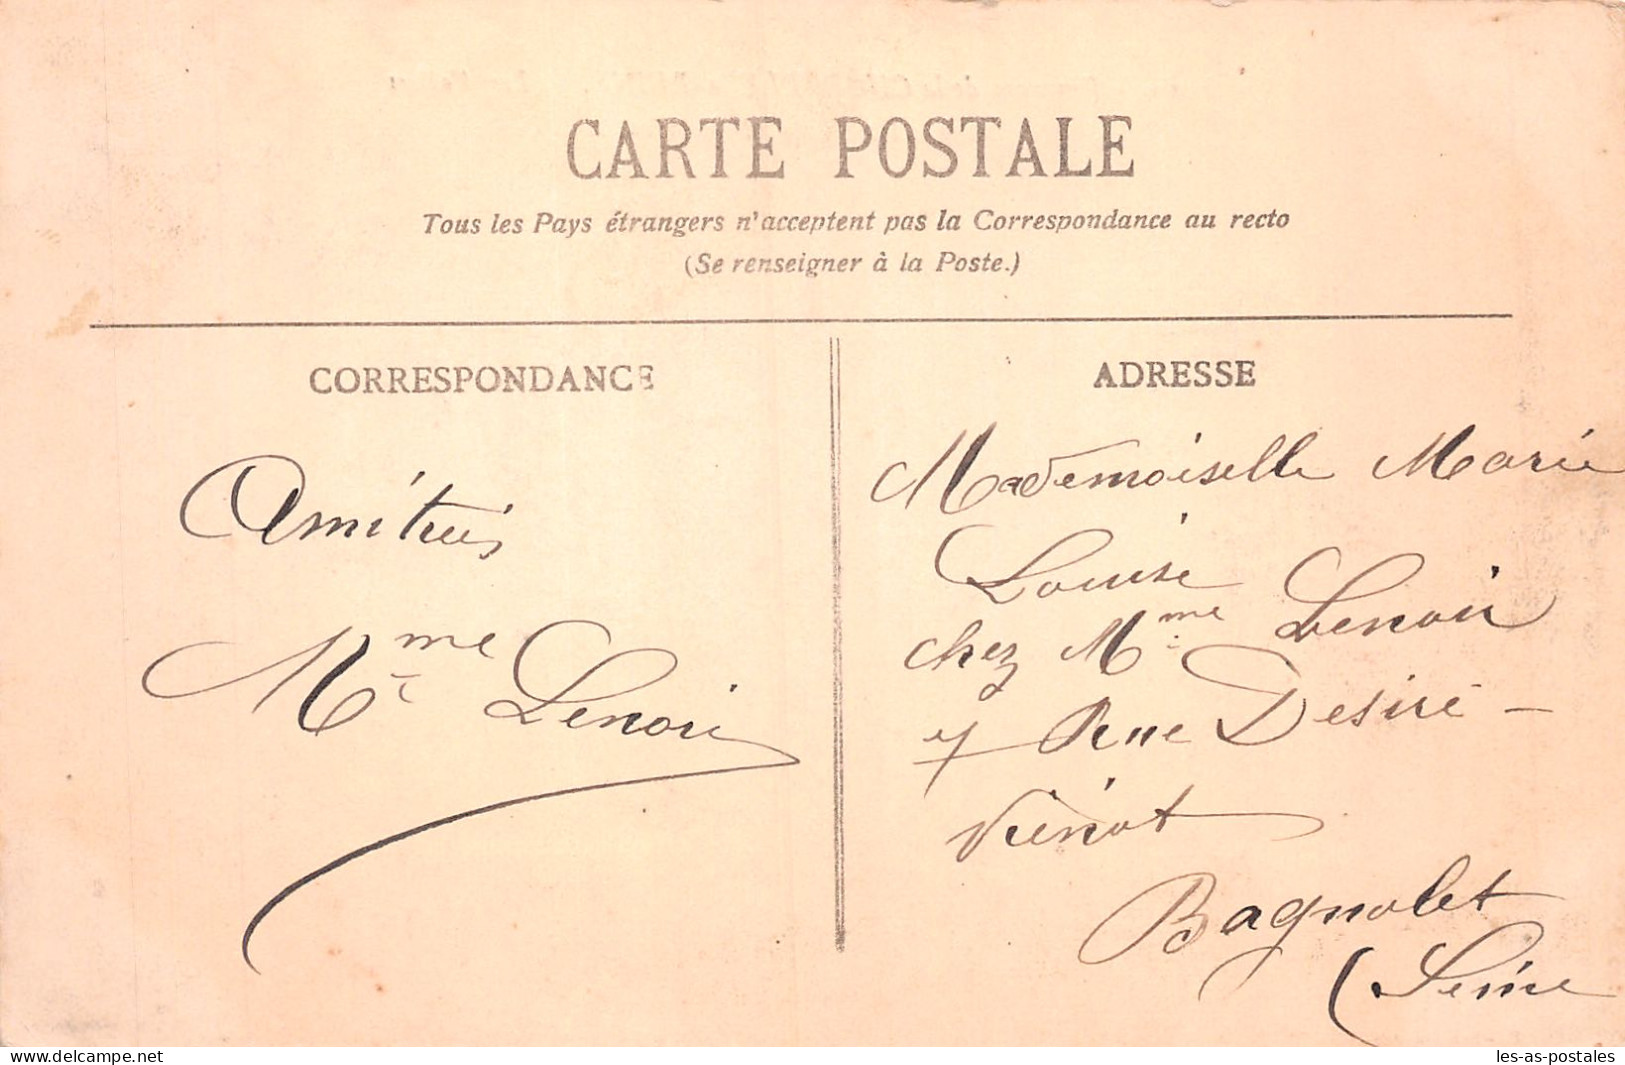 CARTE POSTALE
Tous les Pays étrangers n'acceptent pas la Correspondance au recto
(Se renseigner à la Poste.)
CORRESPONDANCE
ADRESSE
Amitiés
Mme Lenoir
Mademoiselle Marie
Louise
chez Mme Lenoir
7 Rue Desiré -
Viénot
Bagnolet
(Seine
delcampe.net
les-as-postales